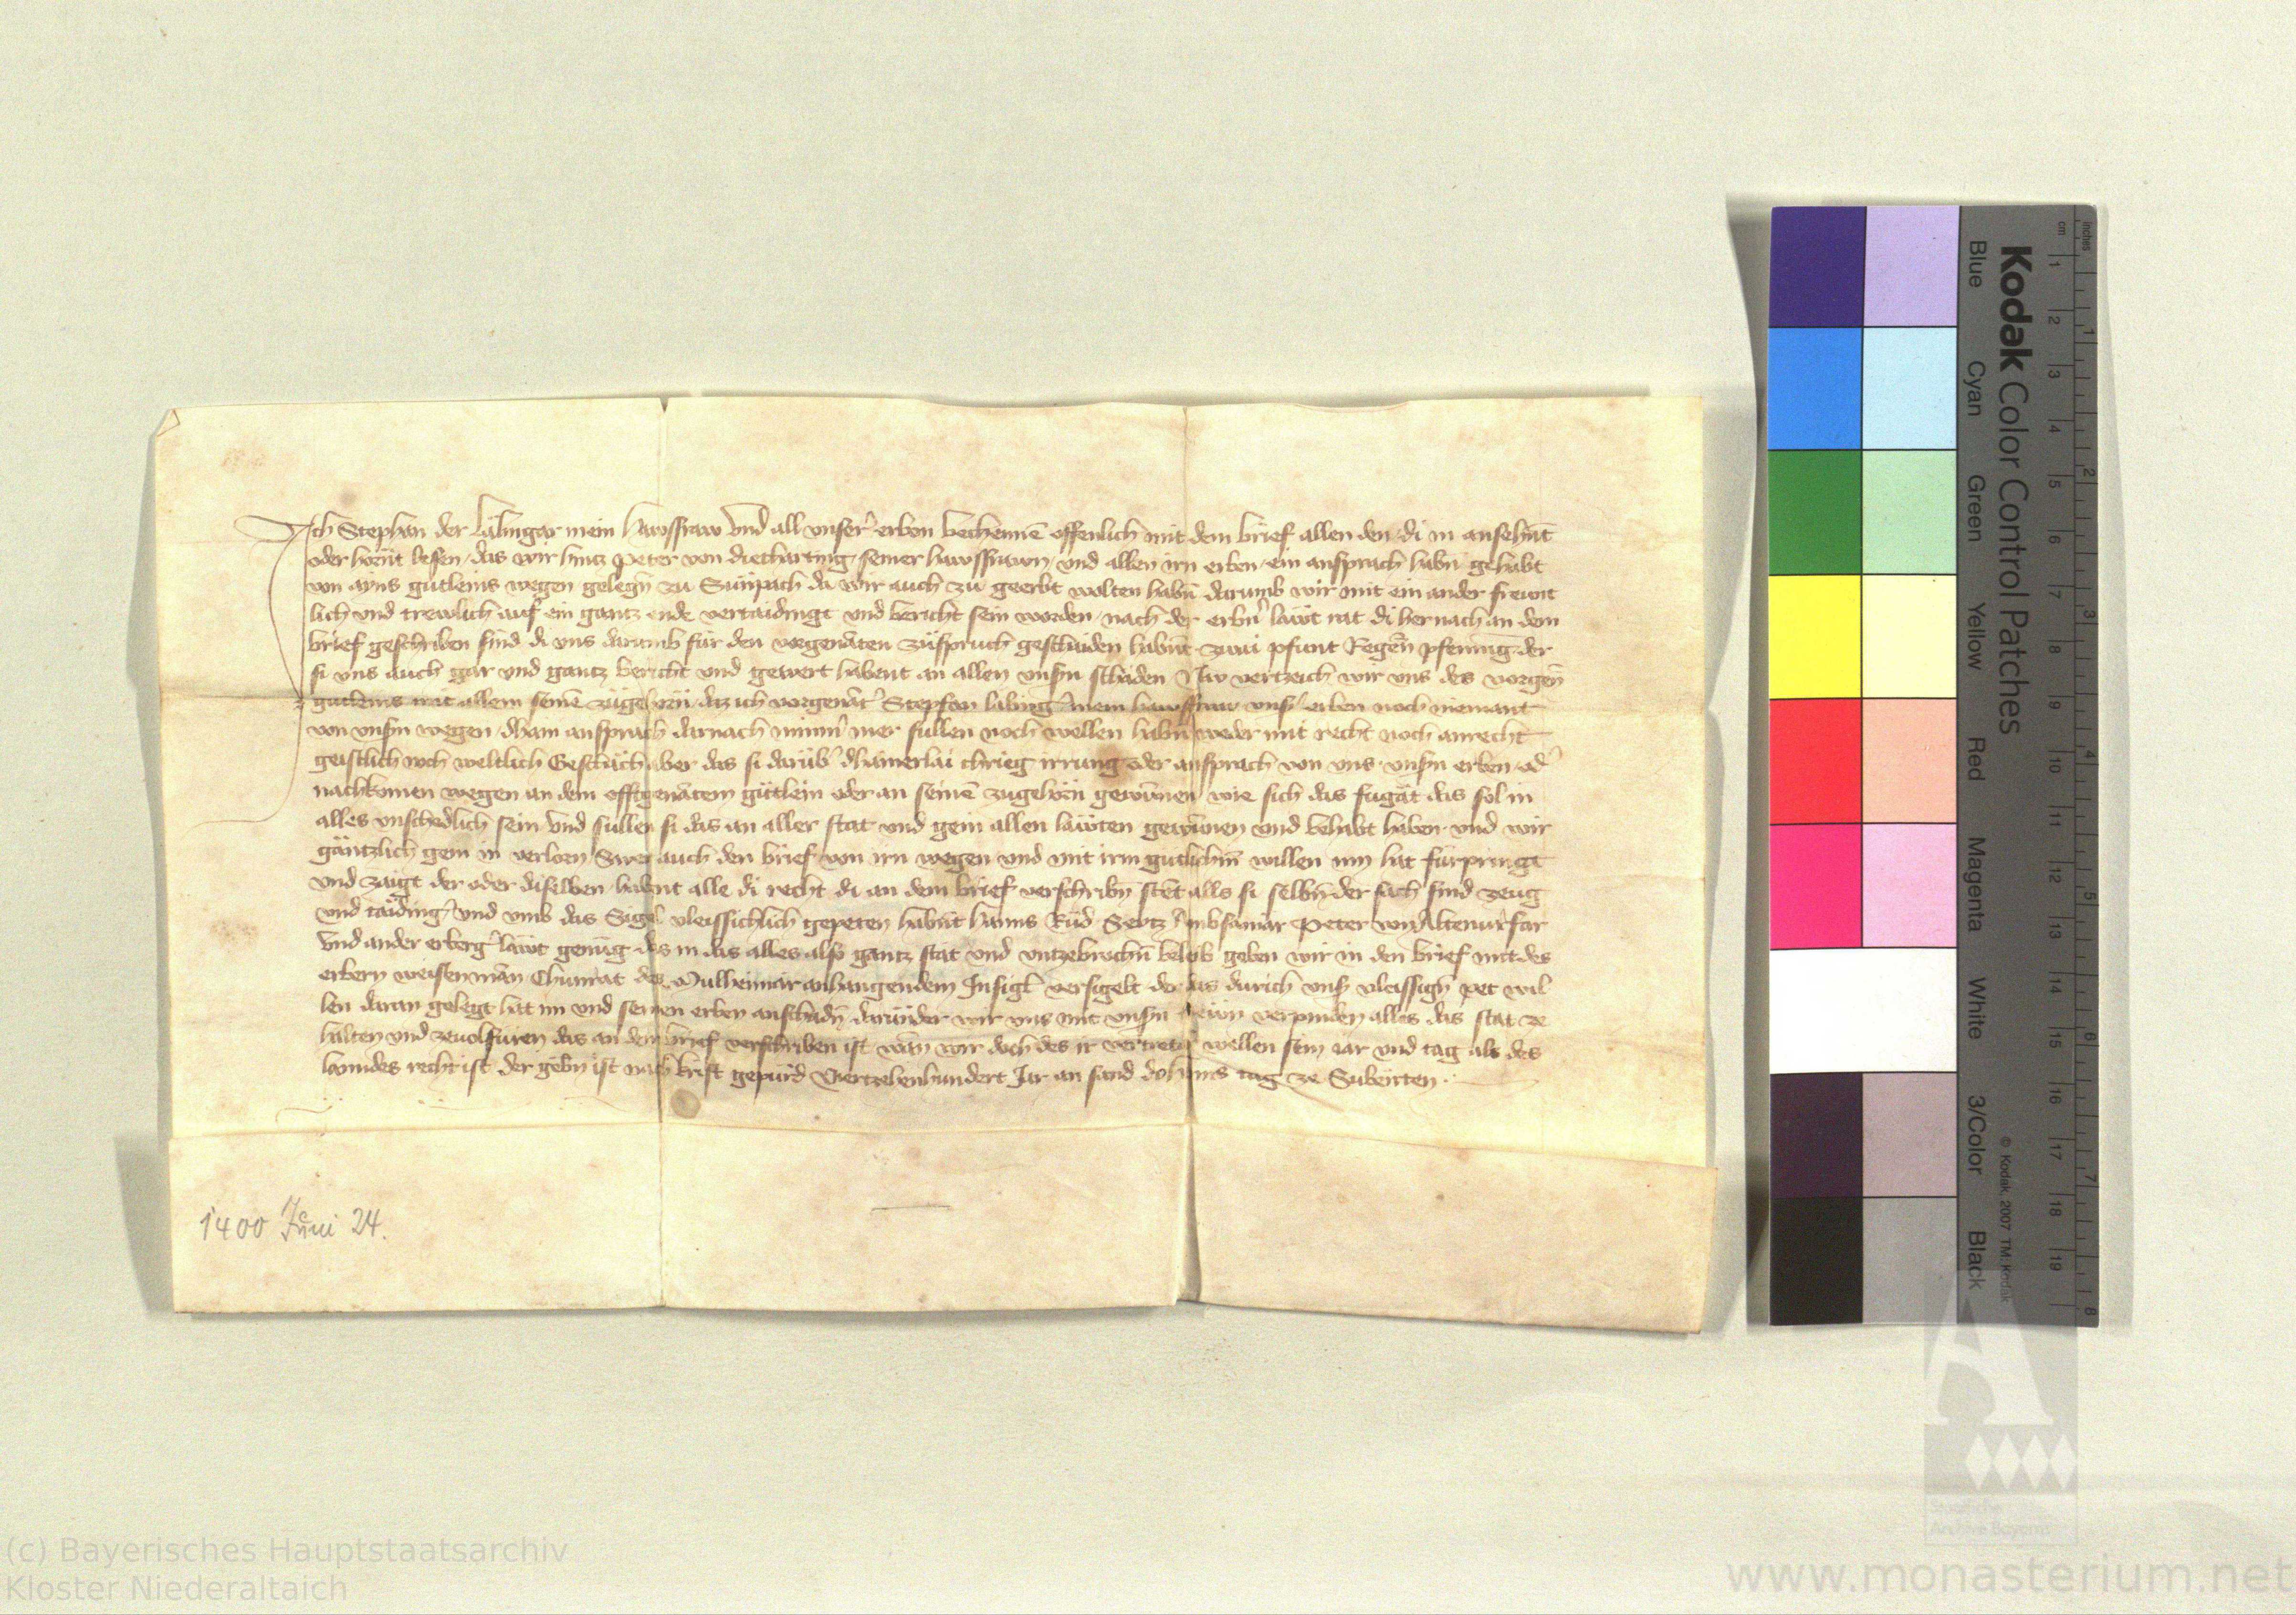 Ich Stephan der Läbinger mein hawsfraw vnd all vnser erben bechennē offenlich mit dem brief allen den di in ansehn̄t
oder hörnt lesen das wir hintz Peter von dietharting seiner hawsfrawn vnd allen irn erben ein ansprach habn̄ gehabt
von ayns gütleins wegen gelegn̄ zu Sünpach da wir auch zu geerbt wolten habn̄ darumb wir mit ein ander freunt
lich vnd trewlich auf ein gantz ende vertaidingt vnd bericht sein worden nach der erbn̄ läwt rat di hernach an dem
brief geschriben sind di vns darumb für den vorgenāten züspruch geschaiden habn̄t zwai pfunt Regēn pfening der
si vns auch gar vnd gantz bericht vnd gewert habent an allen vnsn̄ schaden Nw vertzeich wir vns des vorgen̄
gütleins mit allem seinē zügehörn daz ich vorgenāt Stephan läbing mein hawsfraw vnser erben noch niemant
von vnsn̄ wegen dhain ansprach darnach nimm̄ mer süllen noch wellen habn̄ weder mit recht noch anrecht
geistlich noch weltlich Geschäch aber das si darüb dhainerlai chrieg irrung oder ansprach von vns vnsn̄ erben od
nachkomen wegen an dem offtgenātem gütlein oder an seinē zugehörn gewūnen wie sich das fügāt das sol in
alles vnschedlich sein vnd süllen si das an aller stat vnd gein allen läwten gewūnen vnd behabt haben vnd wir
gäntzlich gein in verlorn Swer auch den brief von irn wegen vnd mit irm gütlichm̄ willen inn hat fürpringt
vnd zaigt der oder diselben habent alle di recht di an dem brief verschribn̄ stēt alls si selbn̄ der sach sind zeug
vnd täiding vnd vmb das Sigel vleissichlich gepeten habn̄t hanns Rüd Seytz Peter von Altenurfar
vnd ander erberg läwt genüg das in das alles also gantz stät vnd vntzebrochn̄ beleib geben wir in den brief mit des
erbern weisen mān Chunrat des Mulheimar anhangendem Insigl versigelt der das durich vnser vleissign̄ pet wil
len daran gelegt hat im vnd seinen erben anschadn̄ darūnder wir vns mit vnsn̄ trewn verpinden alles das stät ze
halten vnd zeuolfüren das an dem brief verschriben ist wān wir doch des ir vertreter wellen sein iar vnd tag als des
lanndes recht ist der gebn̄ ist nach krist gepürd Viertzehenhundert Jar an sand Johāns tag ze Subenten
1400 Juni 24.
Kodak Color Control Patches
Blue Cyan Green Yellow Red Magenta White 3/Color Black
© Kodak, 2007 TM: Kodak
inches 1 2 3 4 5 6 7 8
cm 1 2 3 4 5 6 7 8 9 10 11 12 13 14 15 16 17 18 19
Staatliche
Archive Bayerns
(c) Bayerisches Hauptstaatsarchiv
Kloster Niederaltaich
www.monasterium.net